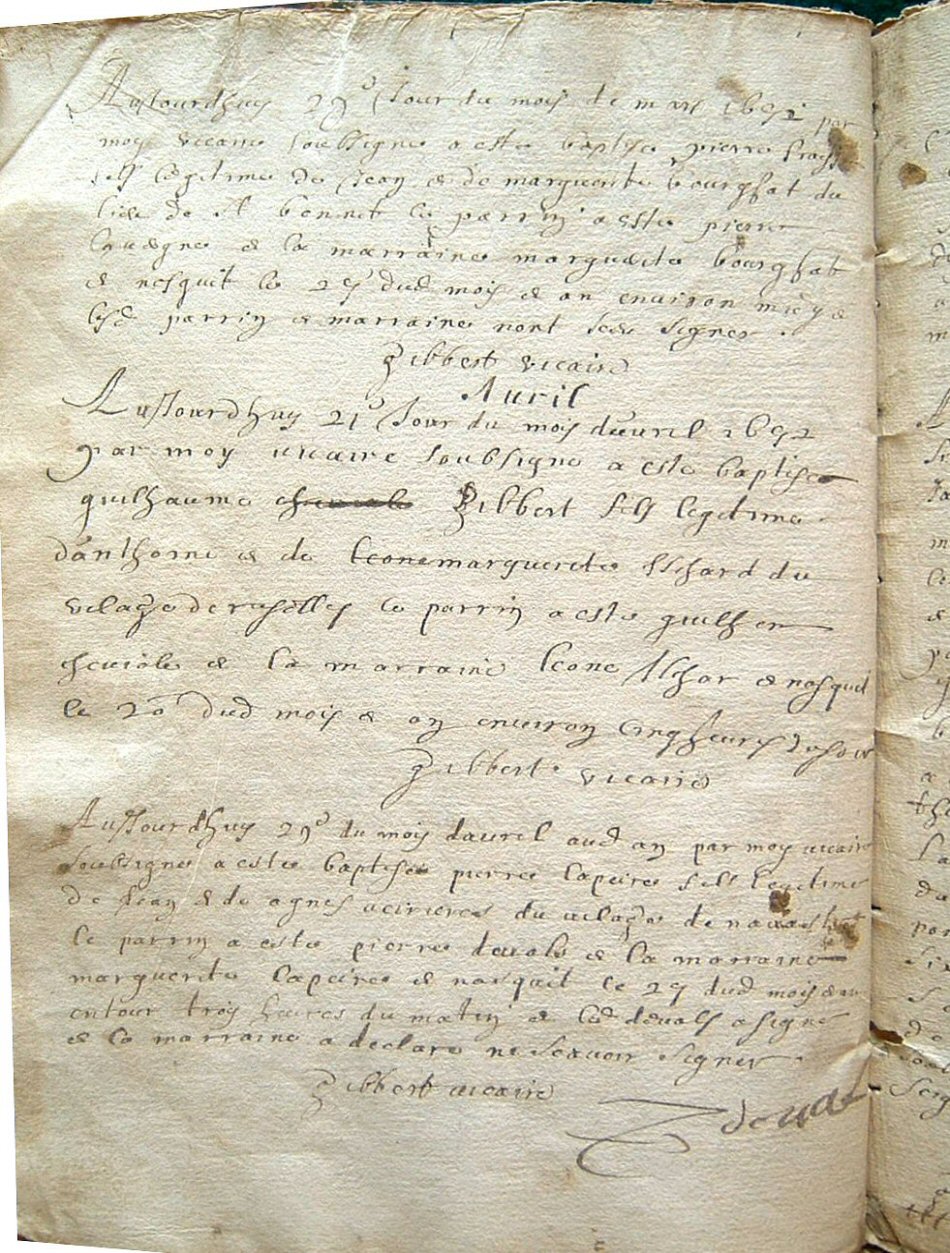 Aujourdhuy 29e Jour du mois de mars 1692 par
moy vicaire soubsigne a este baptise pierre
fils legitime de Jean & de marguerite bourghat du
lieu de st bonnet le parrin a este pierre
& la marraine marguerite bourghat
& nasquit le 27 dud mois & an environ
lesd parrin & marraine nont sceu signer
Gibbert vicaire
Auril
Aujourdhuy 21e Jour du mois dauril 1692
par moy vicaire soubsigne a este baptise
guilhaume Gibbert fils legitime
danthoine & de leone marguerite Achard du
vilage de le parrin a este guilhem
cheuiale & la marraine leone Achar & nasquit
le 20 dud mois & an environ cinq heures du soir
Gibbert vicaire
Aujourdhuy 29e du mois dauril aud an par moy vicaire
soubsigne a este baptise pierre lapeire fils legitime
de Jean & de agnes veirieres du vilage de
le parrin a este pierre deuals & la marraine
marguerite lapeire & nasquit le 27 dud mois & an
entour trois heures du matin & led deuals a signe
& la marraine a declare ne scavoir signer
Gibbert vicaire